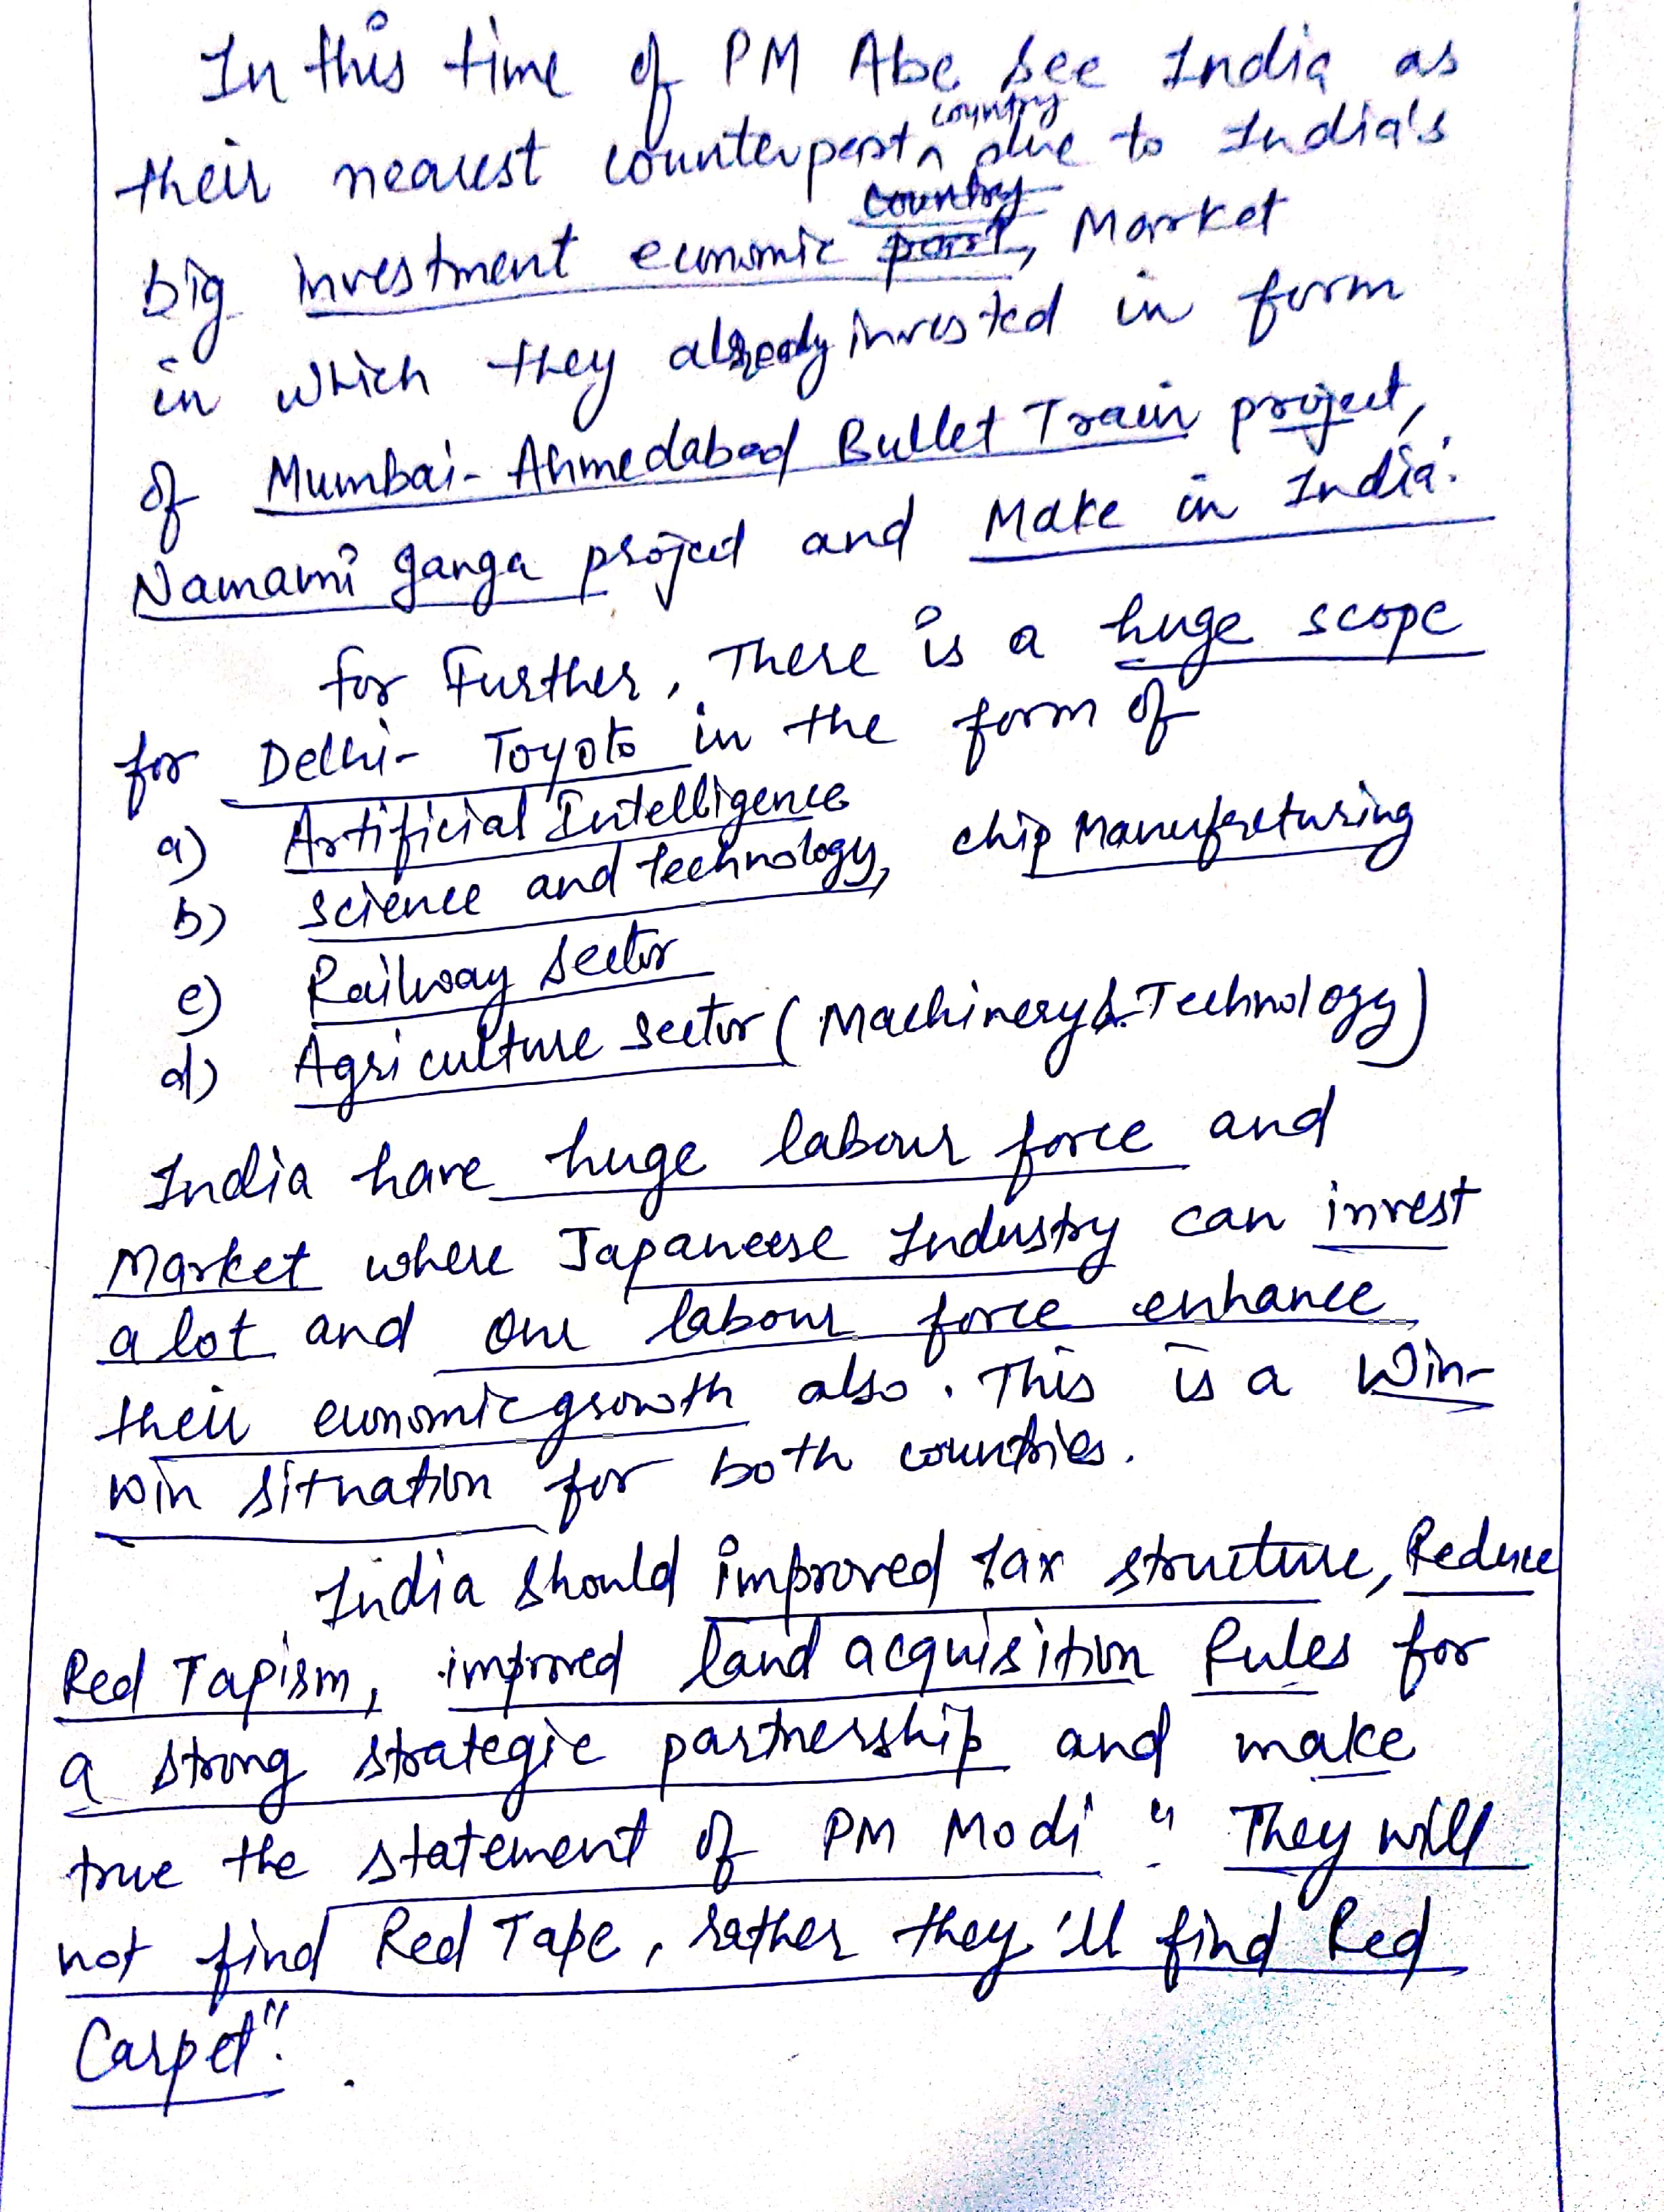 In this time of PM Abe see India as
their nearest counterpart country due to India's
big investment economic country part, Market
in which they already invested in form
of Mumbai- Ahmedabad Bullet Train project,
Namami ganga project and Make in India.
for Further, There is a huge scope
for Delhi- Toyoto in the form of
a) Artificial Intelligence
b) science and technology, chip Manufacturing
c) Railway sector
d) Agriculture sector (Machinery & Technology)
India have huge labour force and
Market where Japaneese Industry can invest
a lot and our labour force enhance
their economic growth also. This is a Win-
win situation for both countries.
India should improved tax structure, Reduce
Red Tapism, improved land acquisition Rules for
a strong strategic partnership and make
true the statement of PM Modi "They will
not find Red Tape, rather they'll find Red
Carpet".